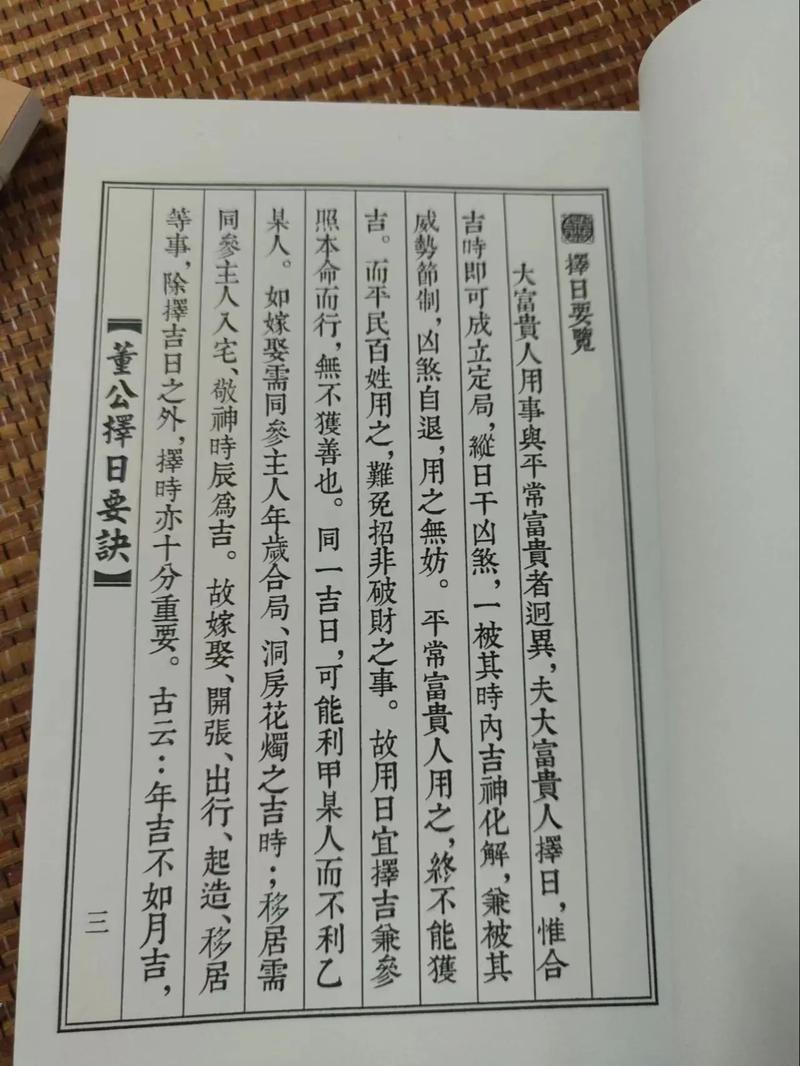 擇日要覽
大富貴人用事與平常富貴者迥異，夫大富貴人擇日，惟合
吉時即可成立定局，縱日干凶煞，一被其時內吉神化解，兼被其
威勢節制，凶煞自退，用之無妨。平常富貴人用之，終不能獲
吉。而平民百姓用之，難免招非破財之事。故用日宜擇吉兼參
照本命而行，無不獲善也。同一吉日，可能利甲某人而不利乙
某人。如嫁娶需同參主人年歲合局、洞房花燭之吉時；移居需
同參主人入宅、敬神時辰為吉。故嫁娶、開張、出行、起造、移居
等事，除擇吉日之外，擇時亦十分重要。古云：年吉不如月吉，
【董公擇日要訣】
三